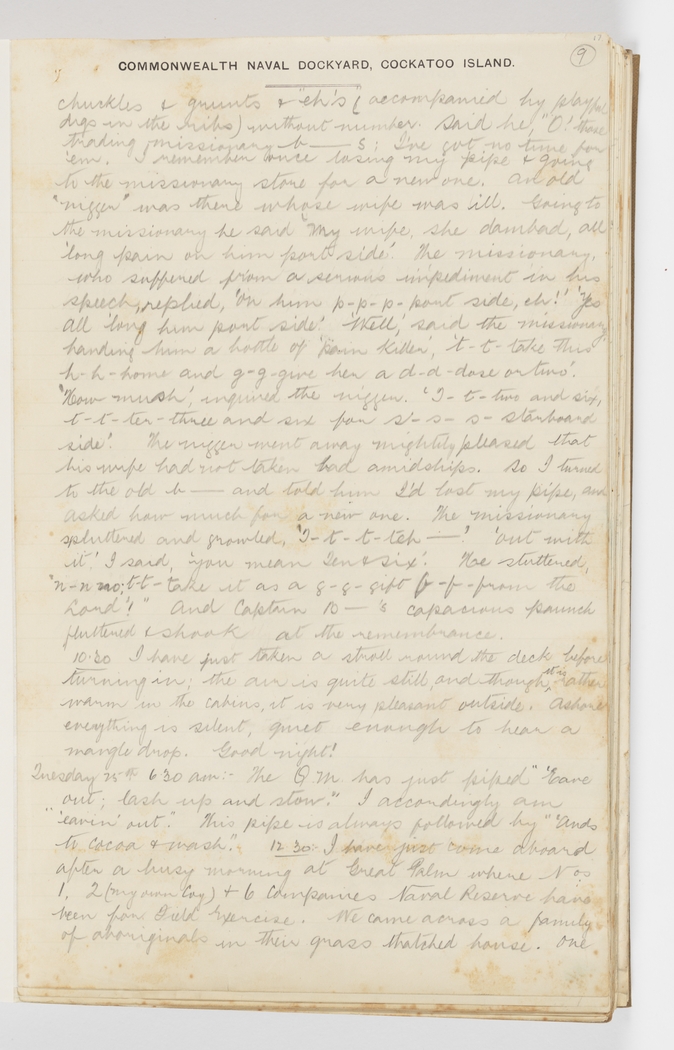 9
COMMONWEALTH NAVAL DOCKYARD, COCKATOO ISLAND.
chuckles & grunts & "eh's" (accompanied by playful
digs in the ribs) without number. Said he, "O! those
trading missionary b—— s; I've got no time for
'em. I remember once losing my pipe & going
to the missionary store for a new one. An old
"nigger" was there whose wife was ill. Going to
the missionary he said 'My wife, she dambad, all
'long pain on him port side'. The missionary,
who suffered from a serious impediment in his
speech, replied, 'On him p-p-p-port side, eh!' 'Yes
all 'long him port side.' 'Well,' said the missionary
handing him a bottle of 'pain killer', 't-t-take this
h-h-home and g-g-give her a d-d-dose or two'.
'How mush', inquired the nigger. 'T-t-two and six,
t-t-ter-three and six for s'-s-s-starboard
side'. The nigger went away mightily pleased that
his wife had not taken bad amidships. So I turned
to the old b—— and told him I'd lost my pipe, and
asked how much for a new one. The missionary
spluttered and growled, 'T-t-t-teh —'! 'Out with
it'! I said, 'you mean Ten & six'. He stuttered,
"n-n no; t-t-take it as a g-g-gift f-f-from the
Lord'!" And Captain 10—'s capacious paunch
fluttered & shook at the remembrance.
10.30 I have just taken a stroll round the deck before
turning in; the air is quite still, and though it is rather
warm in the cabins, it is very pleasant outside. Ashore
everything is silent, quiet enough to hear a
mangle drop. Good night!
Tuesday 25th 6.30 am:- The Q.M. has just piped "'Eave
out; lash up and stow." I accordingly am
"'eavin' out". This pipe is always followed by "'Ands
to cocoa & wash". 12.30:- I have just come aboard
after a busy morning at Great Palm where Nos
1, 2 (my own Coy) & 6 Companies Naval Reserve have
been for Field Exercise. We came across a family
of aboriginals in their grass thatched house. One